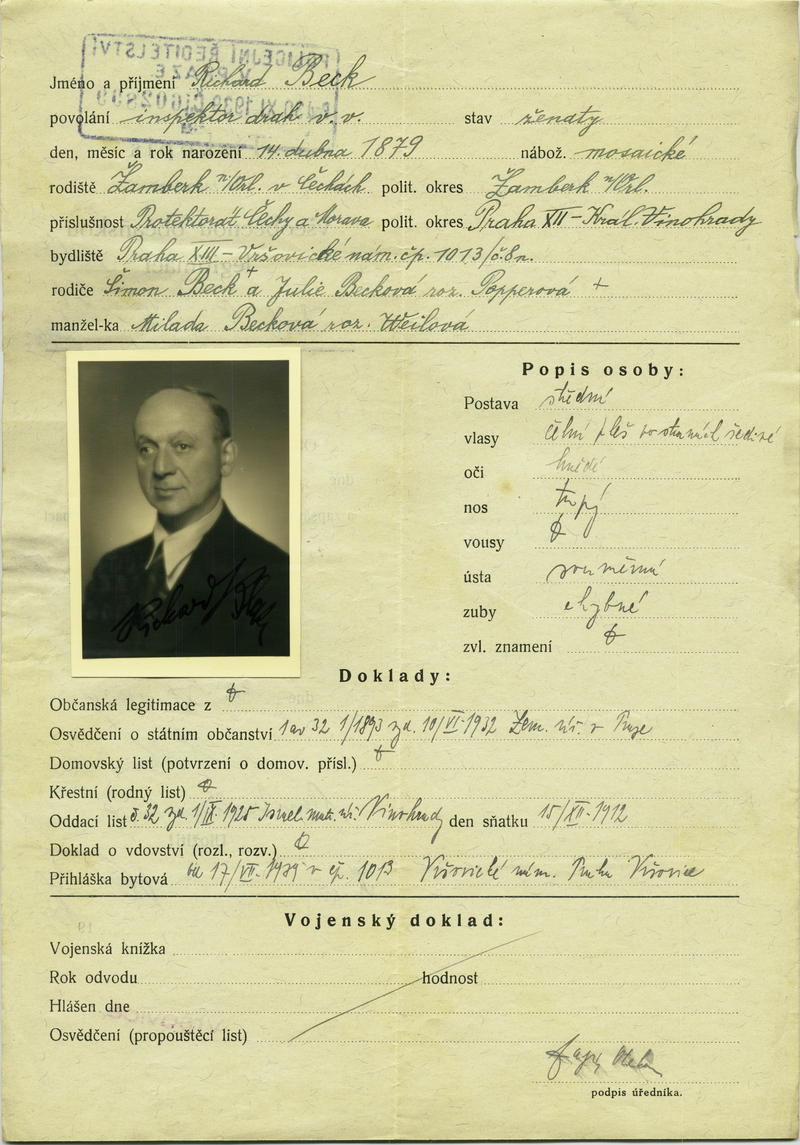 Jméno a příjmení Richard Beck
povolání inspektor drah v. v. stav ženatý
den, měsíc a rok narození 14. dubna 1879 nábož. mosaické
rodiště Žamberk n/Orl. v Čechách polit. okres Žamberk n/Orl.
příslušnost Protektorat Čechy a Morava polit. okres Praha XII - Král. Vinohrady
bydliště Praha XIII - Vršovické nám. čp. 1013/č. 8 n.
rodiče Šimon Beck + a Julie Becková roz. Popperová +
manžel-ka Milada Becková roz. Weilová
Popis osoby:
Postava střední
vlasy čelní pleš po stranách šedivé
oči hnědé
nos tupý
vousy
ústa souměrná
zuby chybné
zvl. znamení
Doklady:
Občanská legitimace z
Osvědčení o státním občanství 32 1/1893 zd. 10/VI. 1932 Zem. úř. v Praze
Domovský list (potvrzení o domov. přísl.)
Křestní (rodný list)
Oddací list č. 32 zd 1/IX. 1925 Israel. mat. úř. Vinohrady den sňatku 15/XII. 1912
Doklad o vdovství (rozl., rozv.)
Přihláška bytová od 17/VII. 1939 v čp. 1013 Vršovické nám. Praha Vršovice
Vojenský doklad:
Vojenská knížka
Rok odvodu hodnost
Hlášen dne
Osvědčení (propouštěcí list)
podpis úředníka.